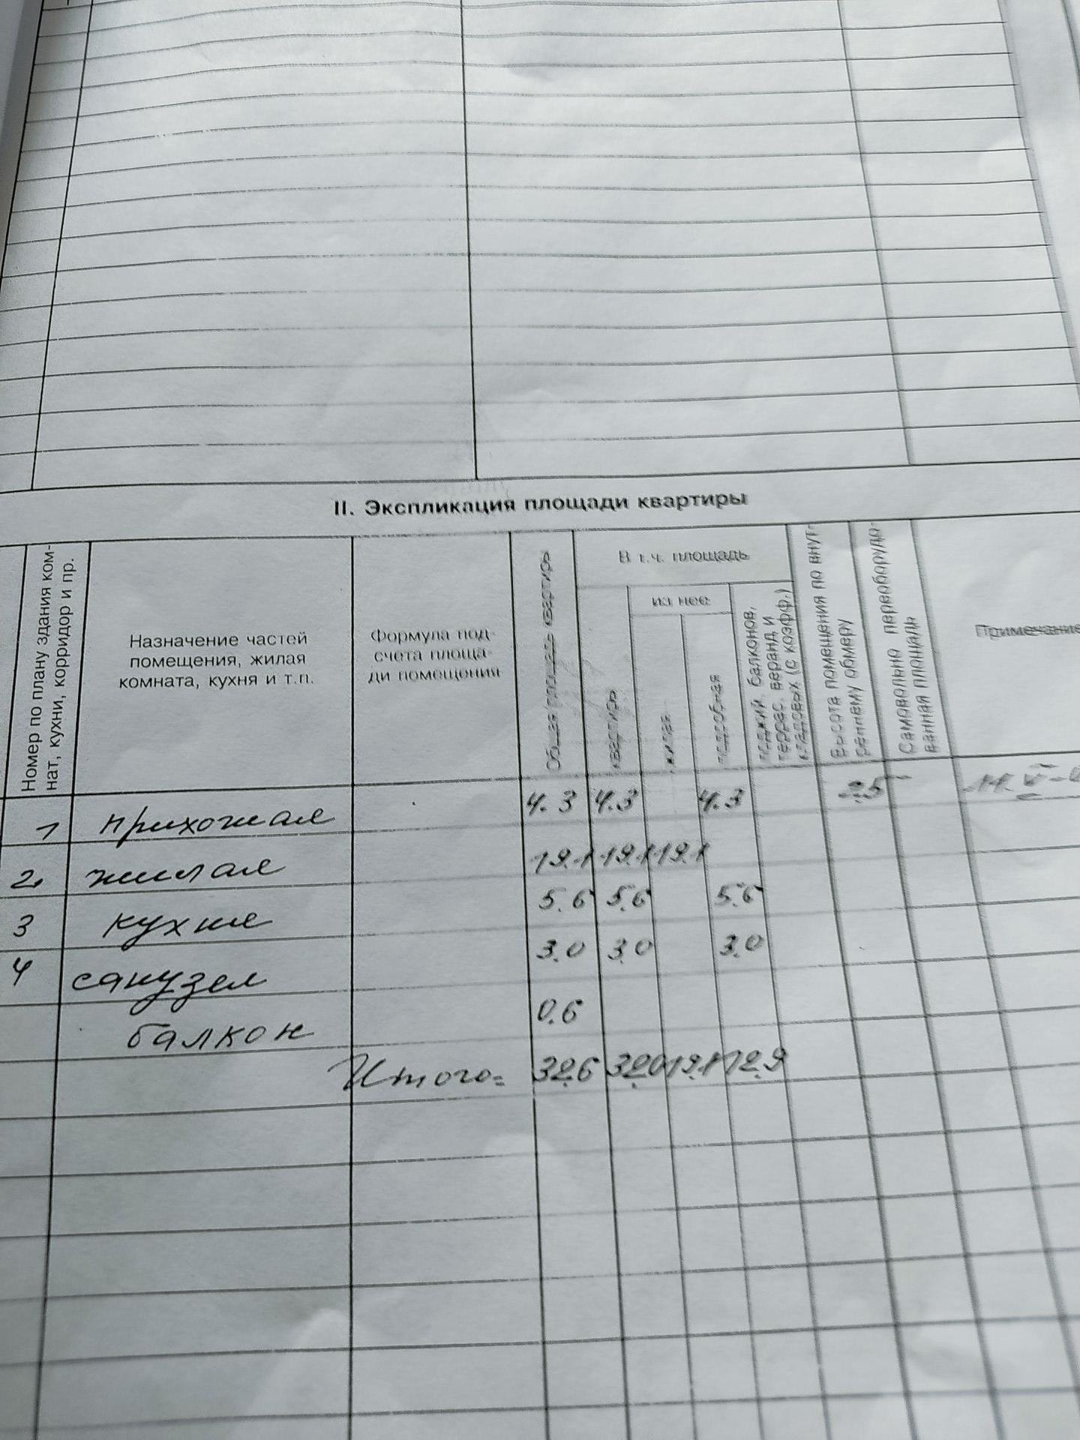 II. Экспликация площади квартиры
Номер по плану здания ком-
нат, кухни, корридор и пр.
Назначение частей
помещения, жилая
комната, кухня и т.п.
Формула под-
счета площа-
ди помещения
Общая площадь квартиры
В т.ч. площадь
квартиры
из нее
жилая
подсобная
лоджий, балконов,
террас, веранд и
кладовых (с коэфф.)
Высота помещения по внут-
реннему обмеру
Самовольно переоборудо-
ванная площадь
Примечание
1 прихожая 4.3 4.3 4.3 2.5
2. жилая 19.1 19.1 19.1
3 кухня 5.6 5.6 5.6
4 санузел 3.0 3.0 3.0
балкон 0.6
Итого= 32.6 32.0 19.1 12.9